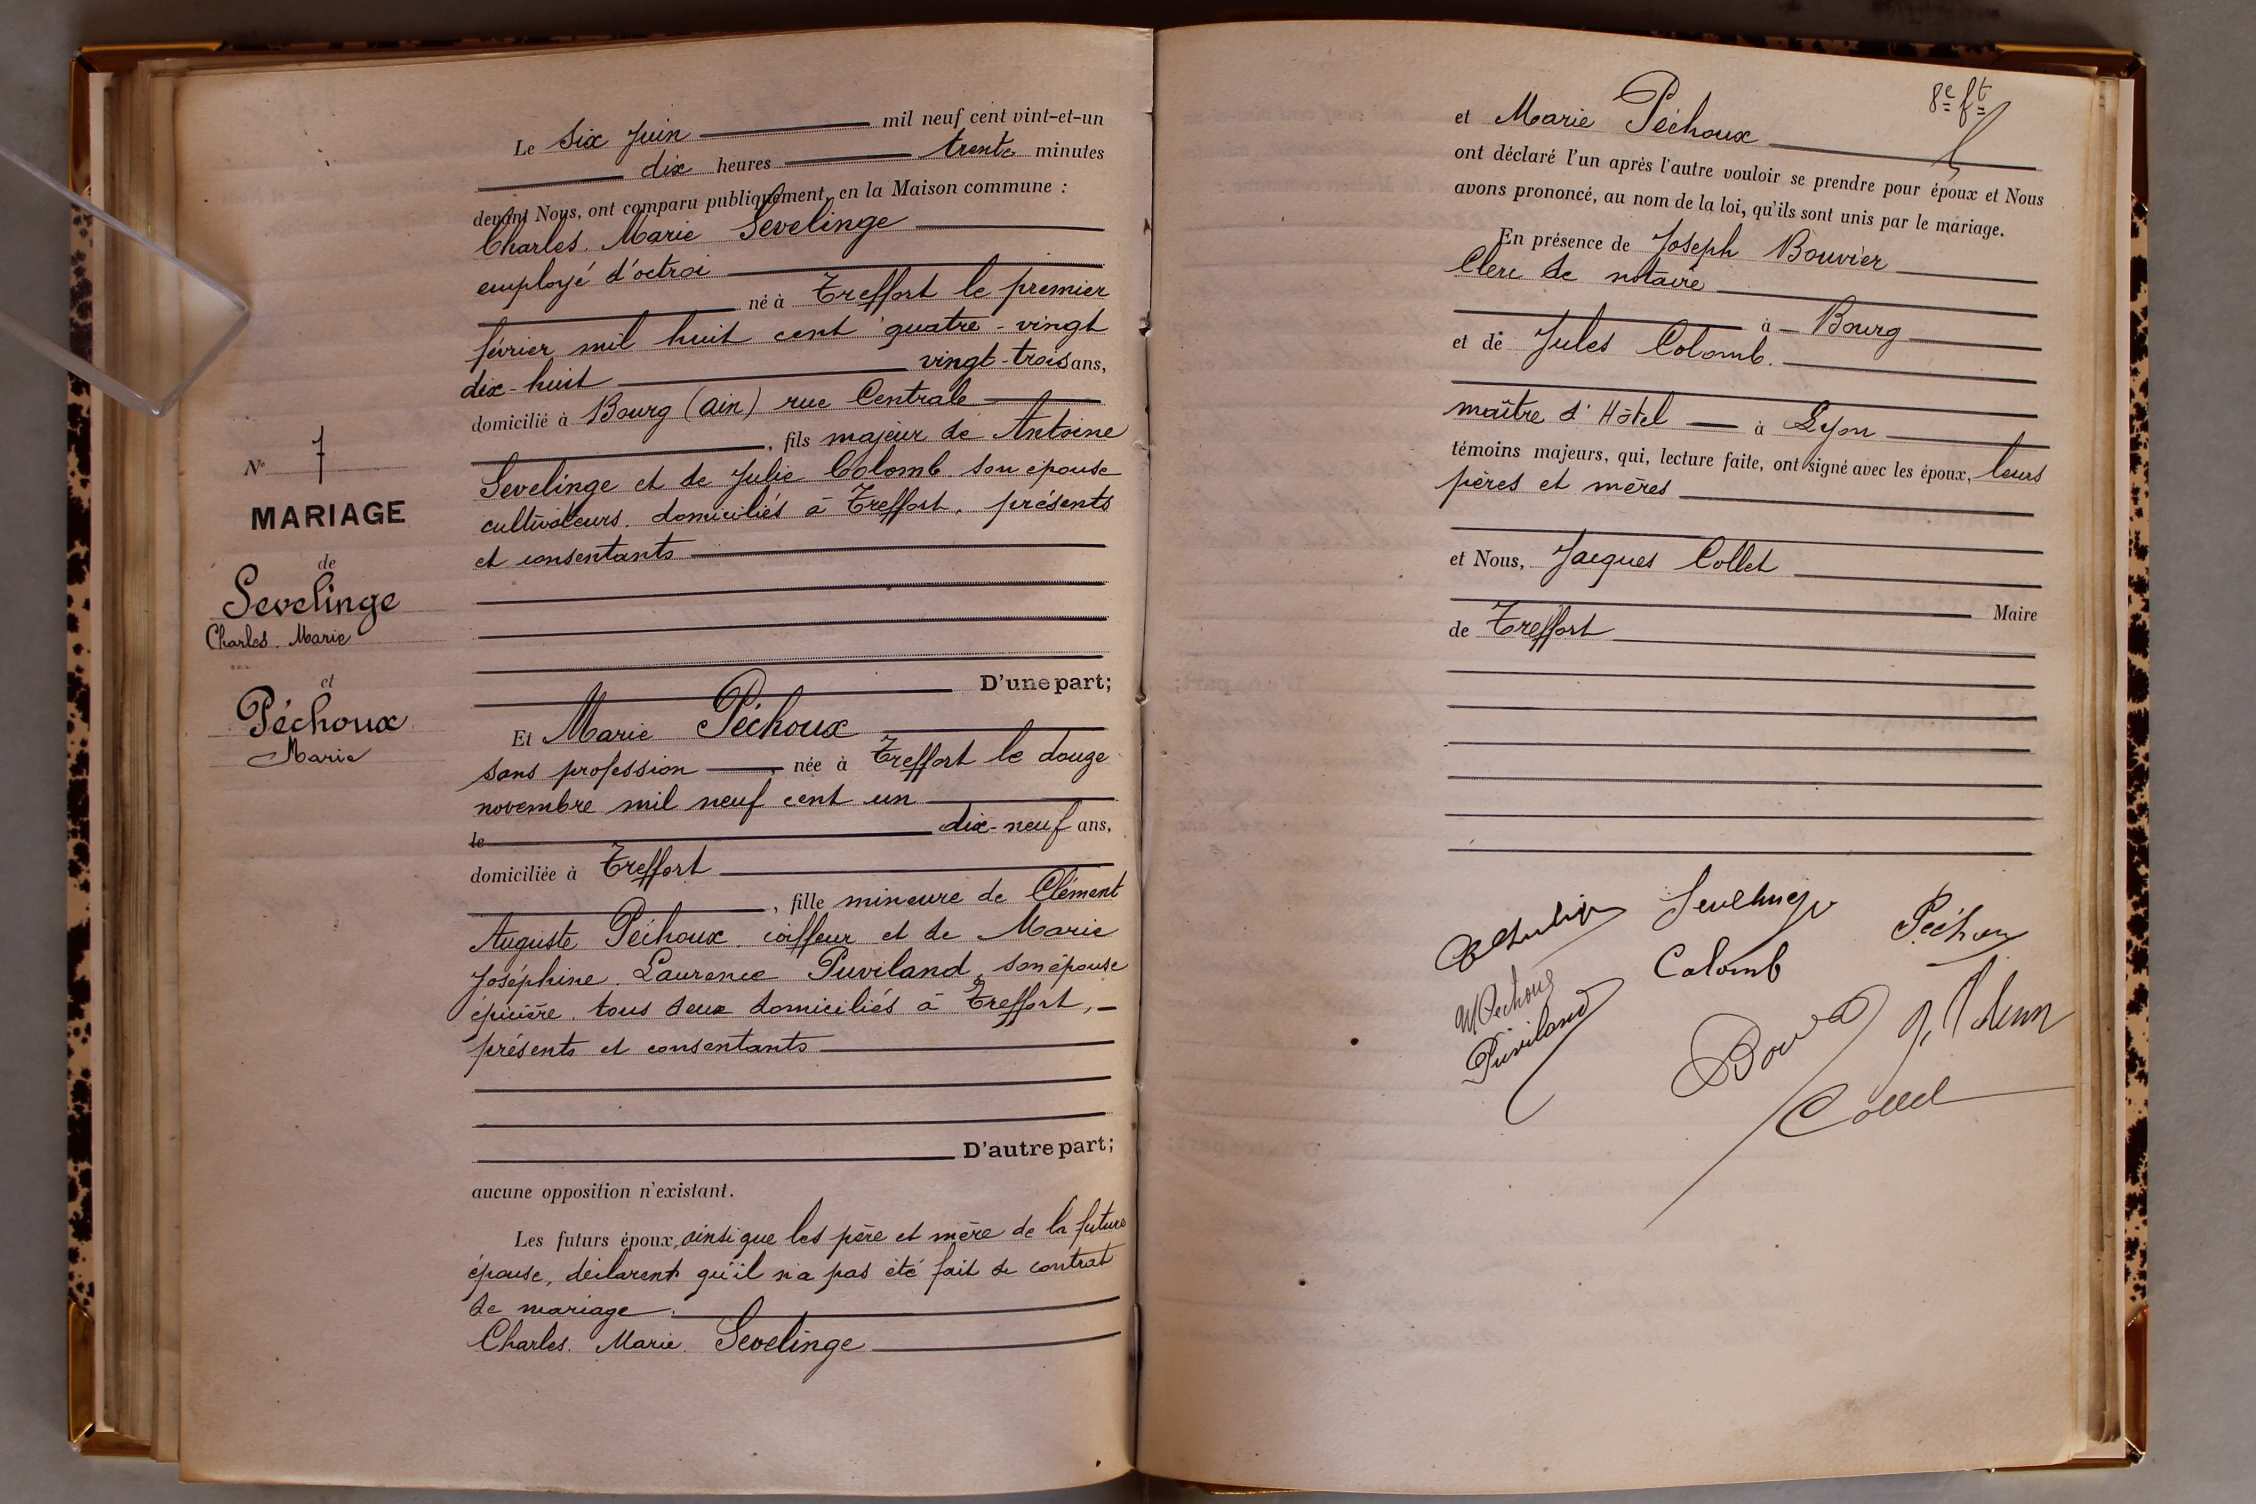 N° 7
MARIAGE
de
Sevelinge
Charles. Marie
et
Péchoux
Marie
Le six juin mil neuf cent vint-et-un
dix heures trente minutes
devant Nous, ont comparu publiquement, en la Maison commune :
Charles. Marie Sevelinge
employé d'octroi
né à Treffort le premier
février mil huit cent quatre-vingt
dix-huit vingt-trois ans,
domicilié à Bourg (ain) rue Centrale
, fils majeur de Antoine
Sevelinge et de Julie Colomb son épouse
cultivateurs. domiciliés à Treffort, présents
et consentants
D'une part;
Et Marie Péchoux
sans profession, née à Treffort le douze
novembre mil neuf cent un
le dix-neuf ans,
domiciliée à Treffort
, fille mineure de Clément
Auguste Péchoux coiffeur et de Marie
Joséphine Laurence Puviland, son épouse
épicière. tous deux domiciliés à Treffort, —
présents et consentants
D'autre part;
aucune opposition n'existant.
Les futurs époux, ainsi que les père et mère de la future
épouse, déclarent qu'il n'a pas été fait de contrat
de mariage.
Charles. Marie. Sevelinge
8e ft
et Marie Péchoux
ont déclaré l'un après l'autre vouloir se prendre pour époux et Nous
avons prononcé, au nom de la loi, qu'ils sont unis par le mariage.
En présence de Joseph Bouvier
Clerc de notaire
à — Bourg
et de Jules Colomb.
maître d'Hôtel — à Lyon
témoins majeurs, qui, lecture faite, ont signé avec les époux, leurs
pères et mères
et Nous, Jacques Collet
Maire
de Treffort
Péchoux
Colomb
M Péchoux
Puviland
Collet